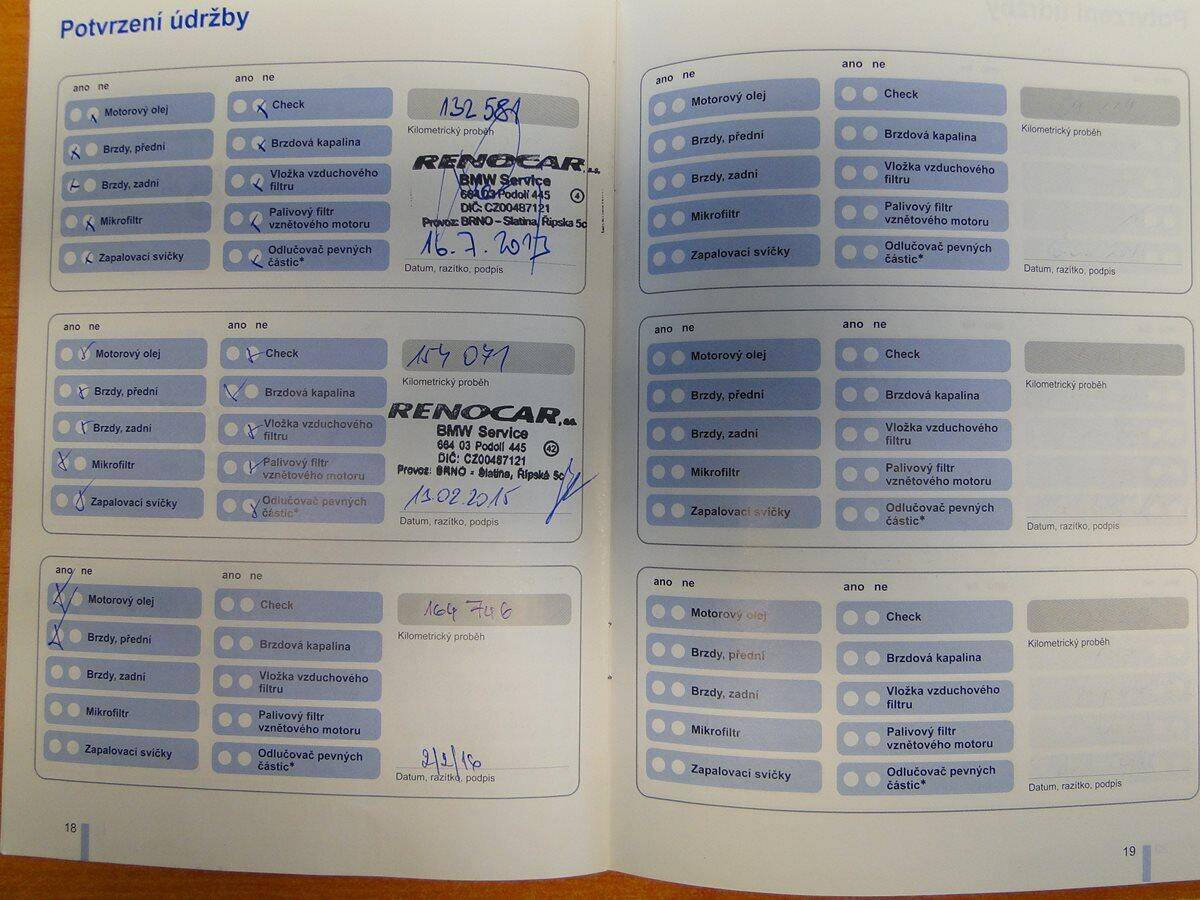 Potvrzení údržby
ano ne
ano ne
Motorový olej
Check
132 581
Brzdy, přední
Brzdová kapalina
Kilometrický proběh
Brzdy, zadní
Vložka vzduchového
filtru
RENOCAR, a.s.
BMW Service
664 03 Podolí 445
4
DIČ: CZ00487121
Provoz: BRNO - Slatina, Řípská 5c
Mikrofiltr
Palivový filtr
vznětového motoru
Zapalovací svíčky
Odlučovač pevných
částic*
16.7.2013
Datum, razítko, podpis
ano ne
ano ne
Motorový olej
Check
154 071
Brzdy, přední
Brzdová kapalina
Kilometrický proběh
Brzdy, zadní
Vložka vzduchového
filtru
RENOCAR, a.s.
BMW Service
664 03 Podolí 445
42
DIČ: CZ00487121
Provoz: BRNO - Slatina, Řípská 5c
Mikrofiltr
Palivový filtr
vznětového motoru
Zapalovací svíčky
Odlučovač pevných
částic*
13.02.2015
Datum, razítko, podpis
ano ne
ano ne
Motorový olej
Check
164 746
Brzdy, přední
Brzdová kapalina
Kilometrický proběh
Brzdy, zadní
Vložka vzduchového
filtru
Mikrofiltr
Palivový filtr
vznětového motoru
Zapalovací svíčky
Odlučovač pevných
částic*
2/2/16
Datum, razítko, podpis
18
ano ne
ano ne
Motorový olej
Check
Brzdy, přední
Brzdová kapalina
Kilometrický proběh
Brzdy, zadní
Vložka vzduchového
filtru
Mikrofiltr
Palivový filtr
vznětového motoru
Zapalovací svíčky
Odlučovač pevných
částic*
Datum, razítko, podpis
ano ne
ano ne
Motorový olej
Check
Brzdy, přední
Brzdová kapalina
Kilometrický proběh
Brzdy, zadní
Vložka vzduchového
filtru
Mikrofiltr
Palivový filtr
vznětového motoru
Zapalovací svíčky
Odlučovač pevných
částic*
Datum, razítko, podpis
ano ne
ano ne
Motorový olej
Check
Brzdy, přední
Brzdová kapalina
Kilometrický proběh
Brzdy, zadní
Vložka vzduchového
filtru
Mikrofiltr
Palivový filtr
vznětového motoru
Zapalovací svíčky
Odlučovač pevných
částic*
Datum, razítko, podpis
19